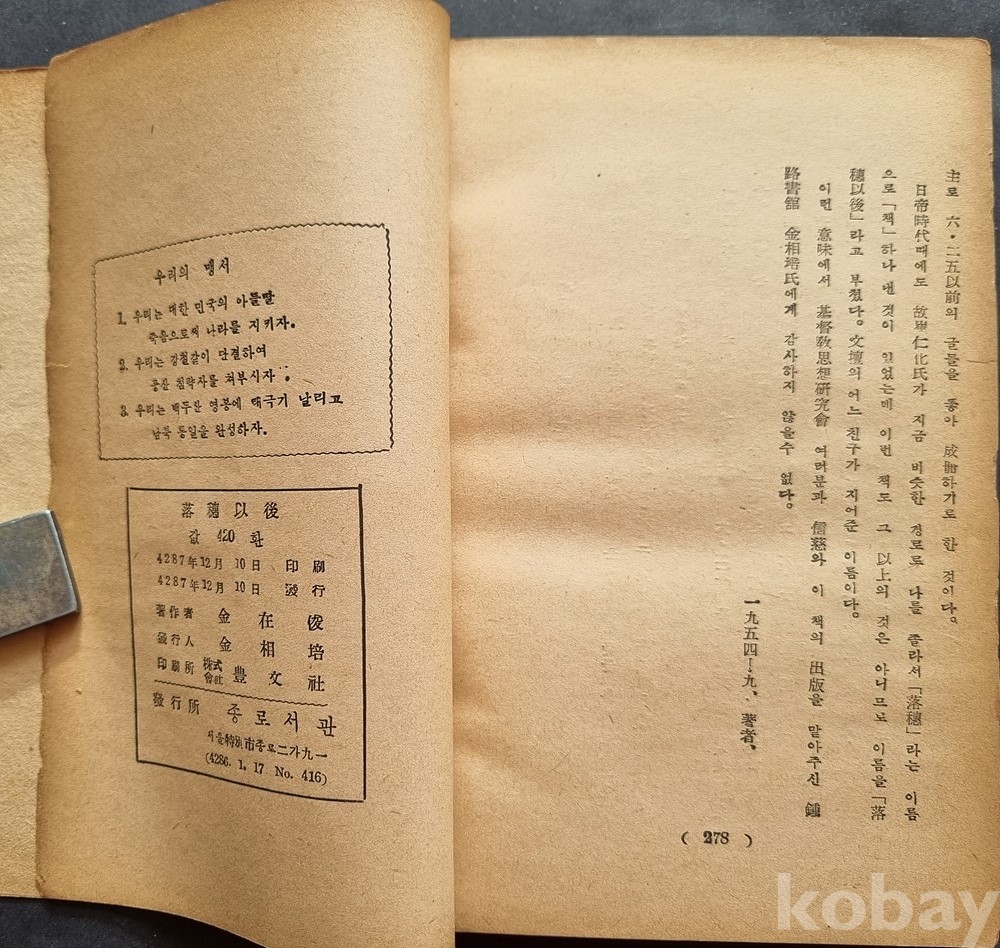 主로 六·二五以前의 글들을 좋아 成冊하기로 한 것이다。
日帝時代때에도 故 仁化氏가 지금 비슷한 경로로 나를 졸라서 「落穗」라는 이름
으로 「책」하나 낸것이 있었는데 이런 책도 그 以上의 것은 아니므로 이름을 「落
穗以後」라고 부쳤다。 文壇의 어느 친구가 지어준 이름이다。
이런 意味에서 基督敎思想硏究會 여러분과 信慈와 이 책의 出版을 맡아주신 鍾
路書館 金相培氏에게 감사하지 않을수 없다。
一九五四—九、 著者、
( 278 )
우리의 맹서
1. 우리는 대한 민국의 아들딸
죽음으로써 나라를 지키자.
2. 우리는 강철같이 단결하여
공산 침략자를 쳐부시자.
3. 우리는 백두산 영봉에 태극기 날리고
남북 통일을 완성하자.
落穗以後
값 420 환
4287年12月 10日 印刷
4287年12月 10日 發行
著作者 金在俊
發行人 金相培
印刷所 株式會社 豊文社
發行所 종로서관
서울特別市종로二가九一
(4286. 1. 17 No. 416)
kobay